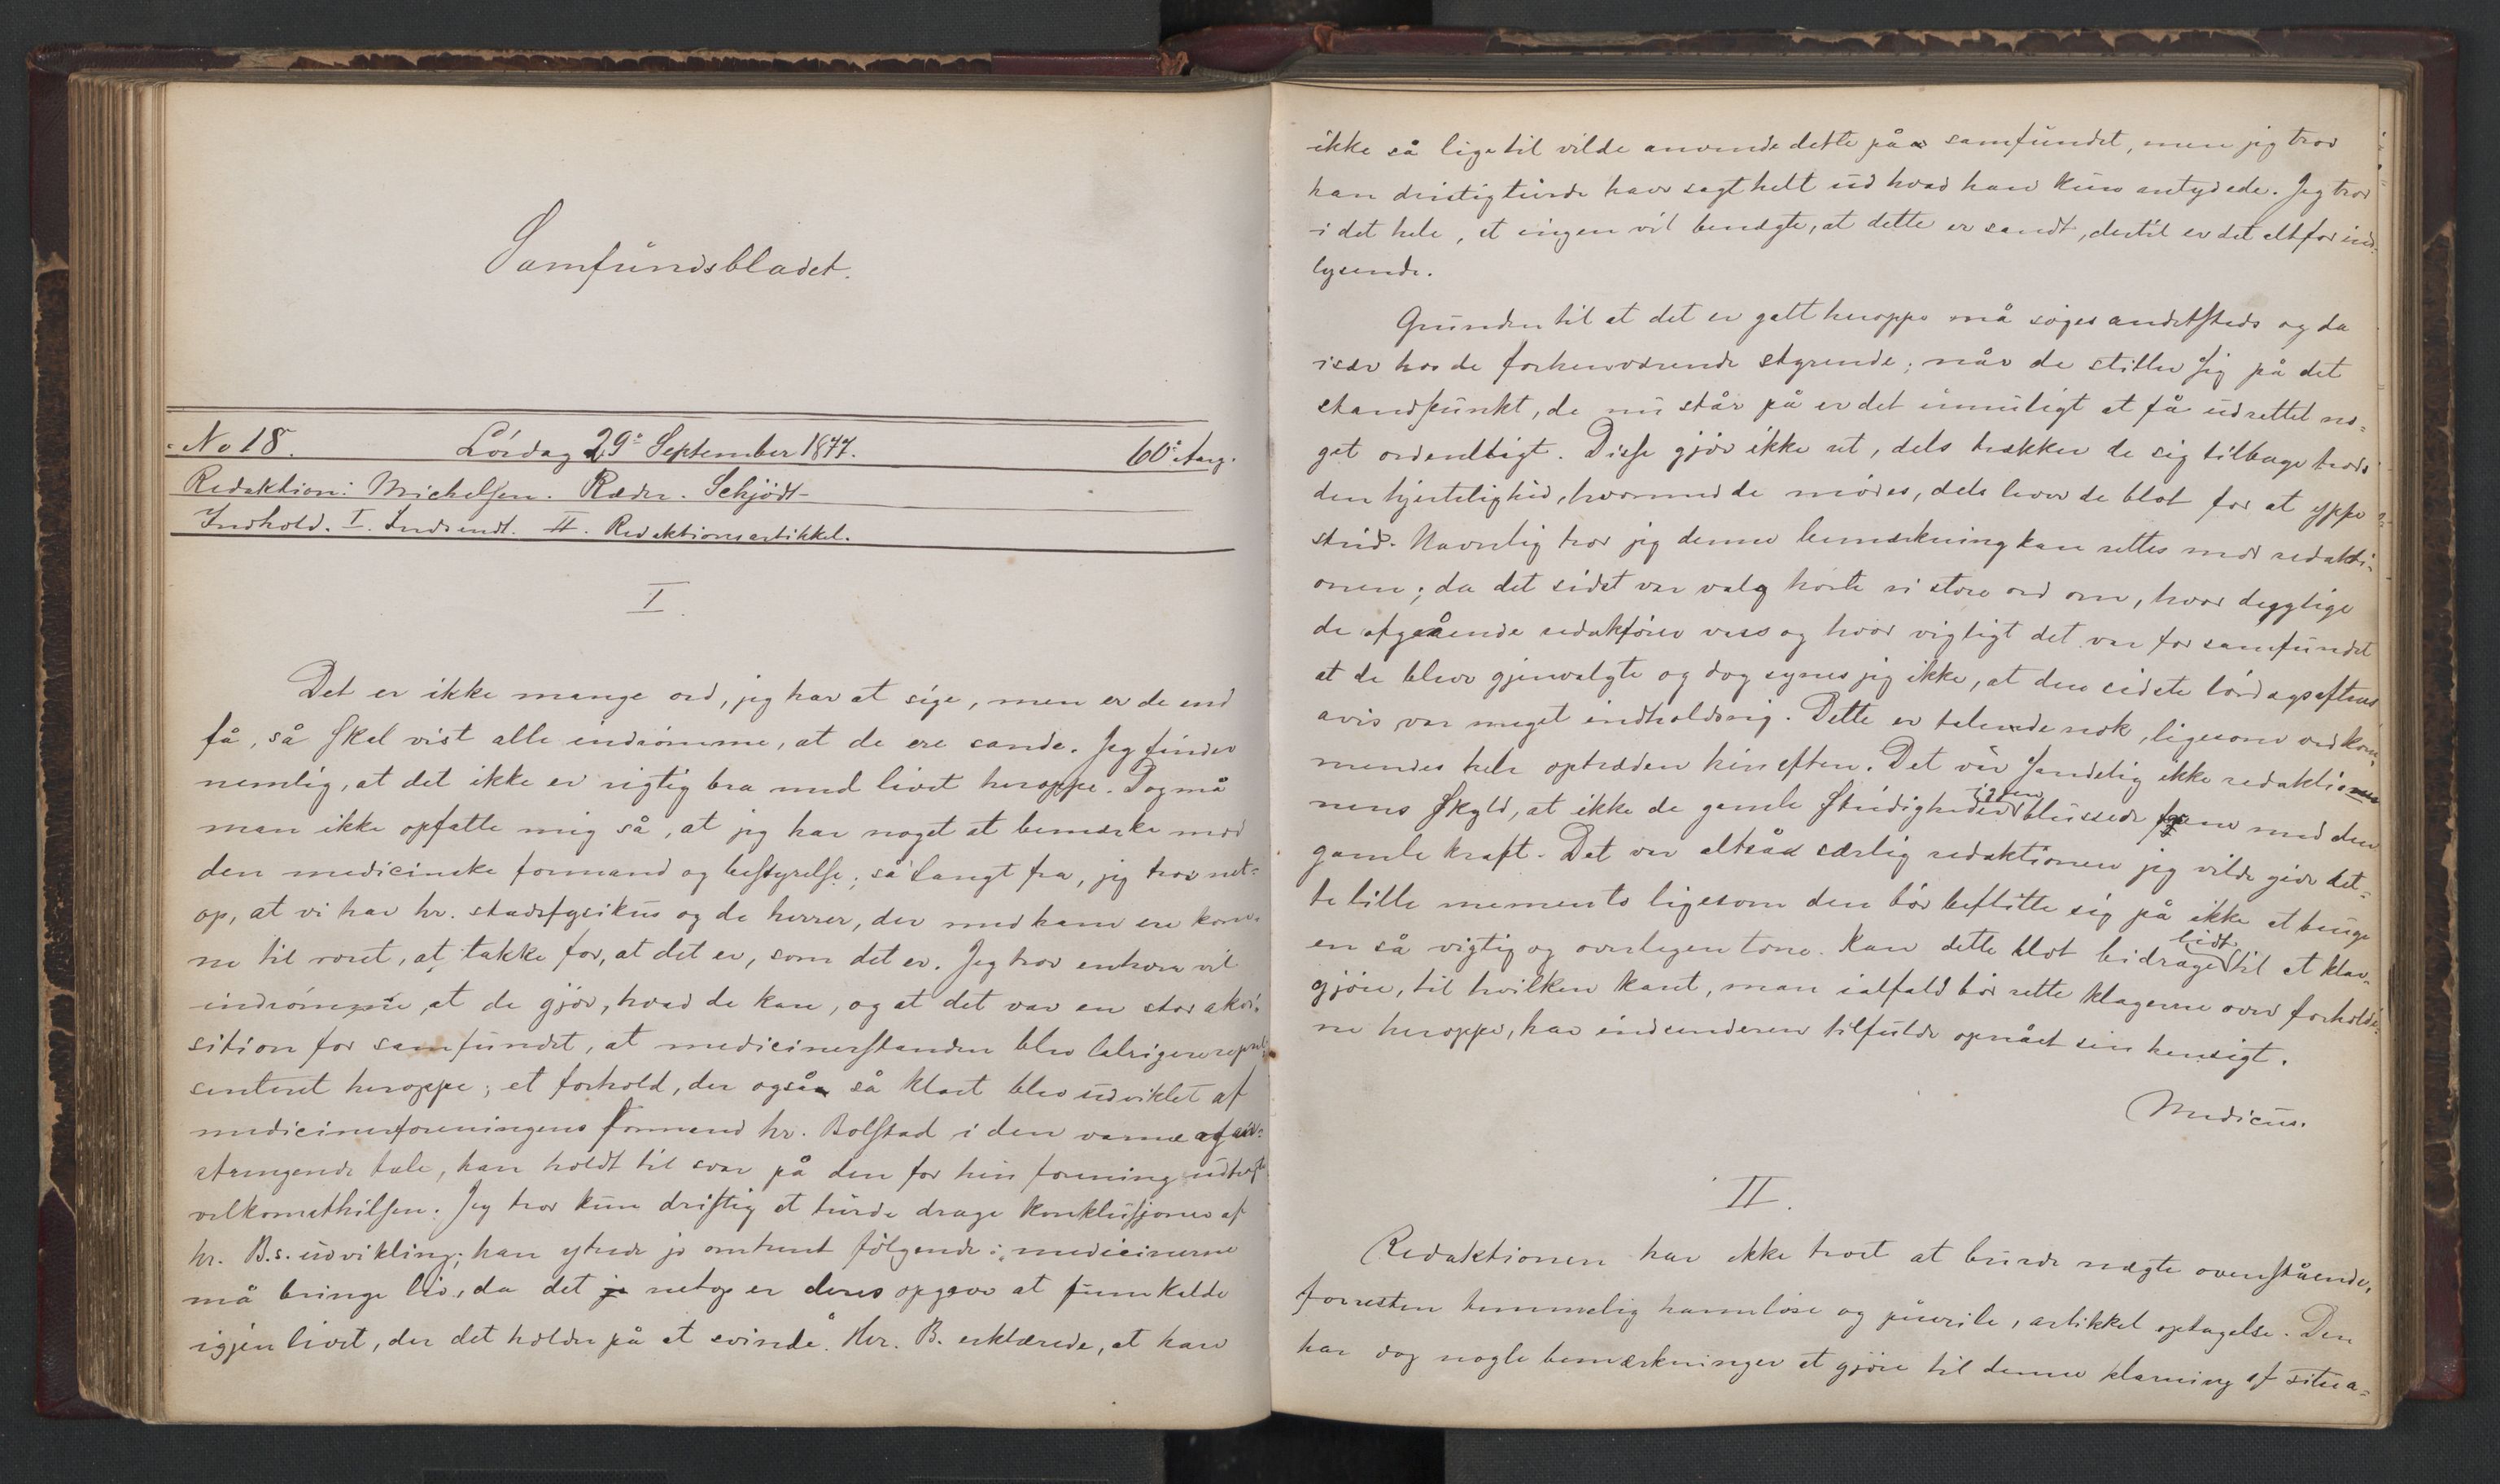 Samfundsbladet.
No 18. Lördag 29de September 1877. 60de Aarg.
Redaktion: Michelsen. Ræder. Schjödt
Indhold. I. Indsendt. II. Redaktionsartikkel.
I.
Det er ikke mange ord, jeg har at sige, men er de end
få, så skal vist alle indrömme, at de ere sande. Jeg finder
nemlig, at det ikke er rigtig bra med livet heroppe. Dog må
man ikke opfatte mig så, at jeg har noget at bemærke mod
den medicinske formand og bestyrelse; så langt fra, jeg tror net-
op, at vi har hr. stadsfysikus og de herrer, der med ham ere kom-
ne til roret, at takke for, at det er, som det er. Jeg tror enhver vil
indrömme, at de gjör, hvad de kan, og at det var en stor akvi-
sition for samfundet, at medicinerstanden blev talrigere repræ-
senteret heroppe; et forhold, der også så klart blev udviklet af
medicinerforeningens formand hr. Bolstad i den varme og an-
strengende tale, han holdt til svar på den for hin forening udbragte
velkomsthilsen. Jeg tror kun driftig at turde drage konklusjoner af
hr. B.s. udvikling; han ytrede jo omtrent fölgende: „medicinerne
må bringe liv, da det netop er deres opgave at fremkalde
igjen livet, der det holder på at svinde". Hr. B. erklærede, at han
ikke så ligetil vilde anvende dette på samfundet, men jeg tror
han dristig turde have sagt helt ud hvad han kun antydede. Jeg tror
i det hele, at ingen vil benægte, at dette er sandt, dertil er det altfor ind-
lysende.
Grunden til at det er galt heroppe må söges andetsteds og da
især hos de forhenværende styrende; når de stiller sig på det
standpunkt, de nu står på er det umuligt at få udrettet no-
get ordentligt. Disse gjör ikke ret, dels trækker de sig tilbage trods
den hjertelighed, hvormed de mödes, dels lever de blot for at yppe
strid. Navnlig tror jeg denne bemærkning kan rettes mod redakti-
onen; da det sidst var valg hörte vi store ord om, hvor dygtige
de afgående redaktörer vare og hvor vigtigt det var for samfundet
at de bleve gjenvalgte og dog synes jeg ikke, at den sidste lördagsaftens
avis var meget indholdsrig. Dette er talende nok, ligesom vedkom-
mendes hele optræden hin aften. Det var sandelig ikke redaktio-
nens skyld, at ikke de gamle stridigheder igjen blussede frem med den
gamle kraft. Det var altså særlig redaktionen jeg vilde give det-
te lille memento ligesom den bör beflitte sig på ikke at bruge
en så vigtig og overlegen tone. Kan dette blot bidrage lidt til at klar-
gjöre, til hvilken kant, man ialfald bör rette klagerne over forholde-
ne heroppe, har indsenderen tilfulde opnået sin hensigt.
Medicus.
II.
Redaktionen har ikke troet at burde nægte ovenstående,
forresten temmelig harmlöse og puerile, artikkel optagelse. Den
har dog nogle bemærkninger at gjöre til denne klarning af situa-